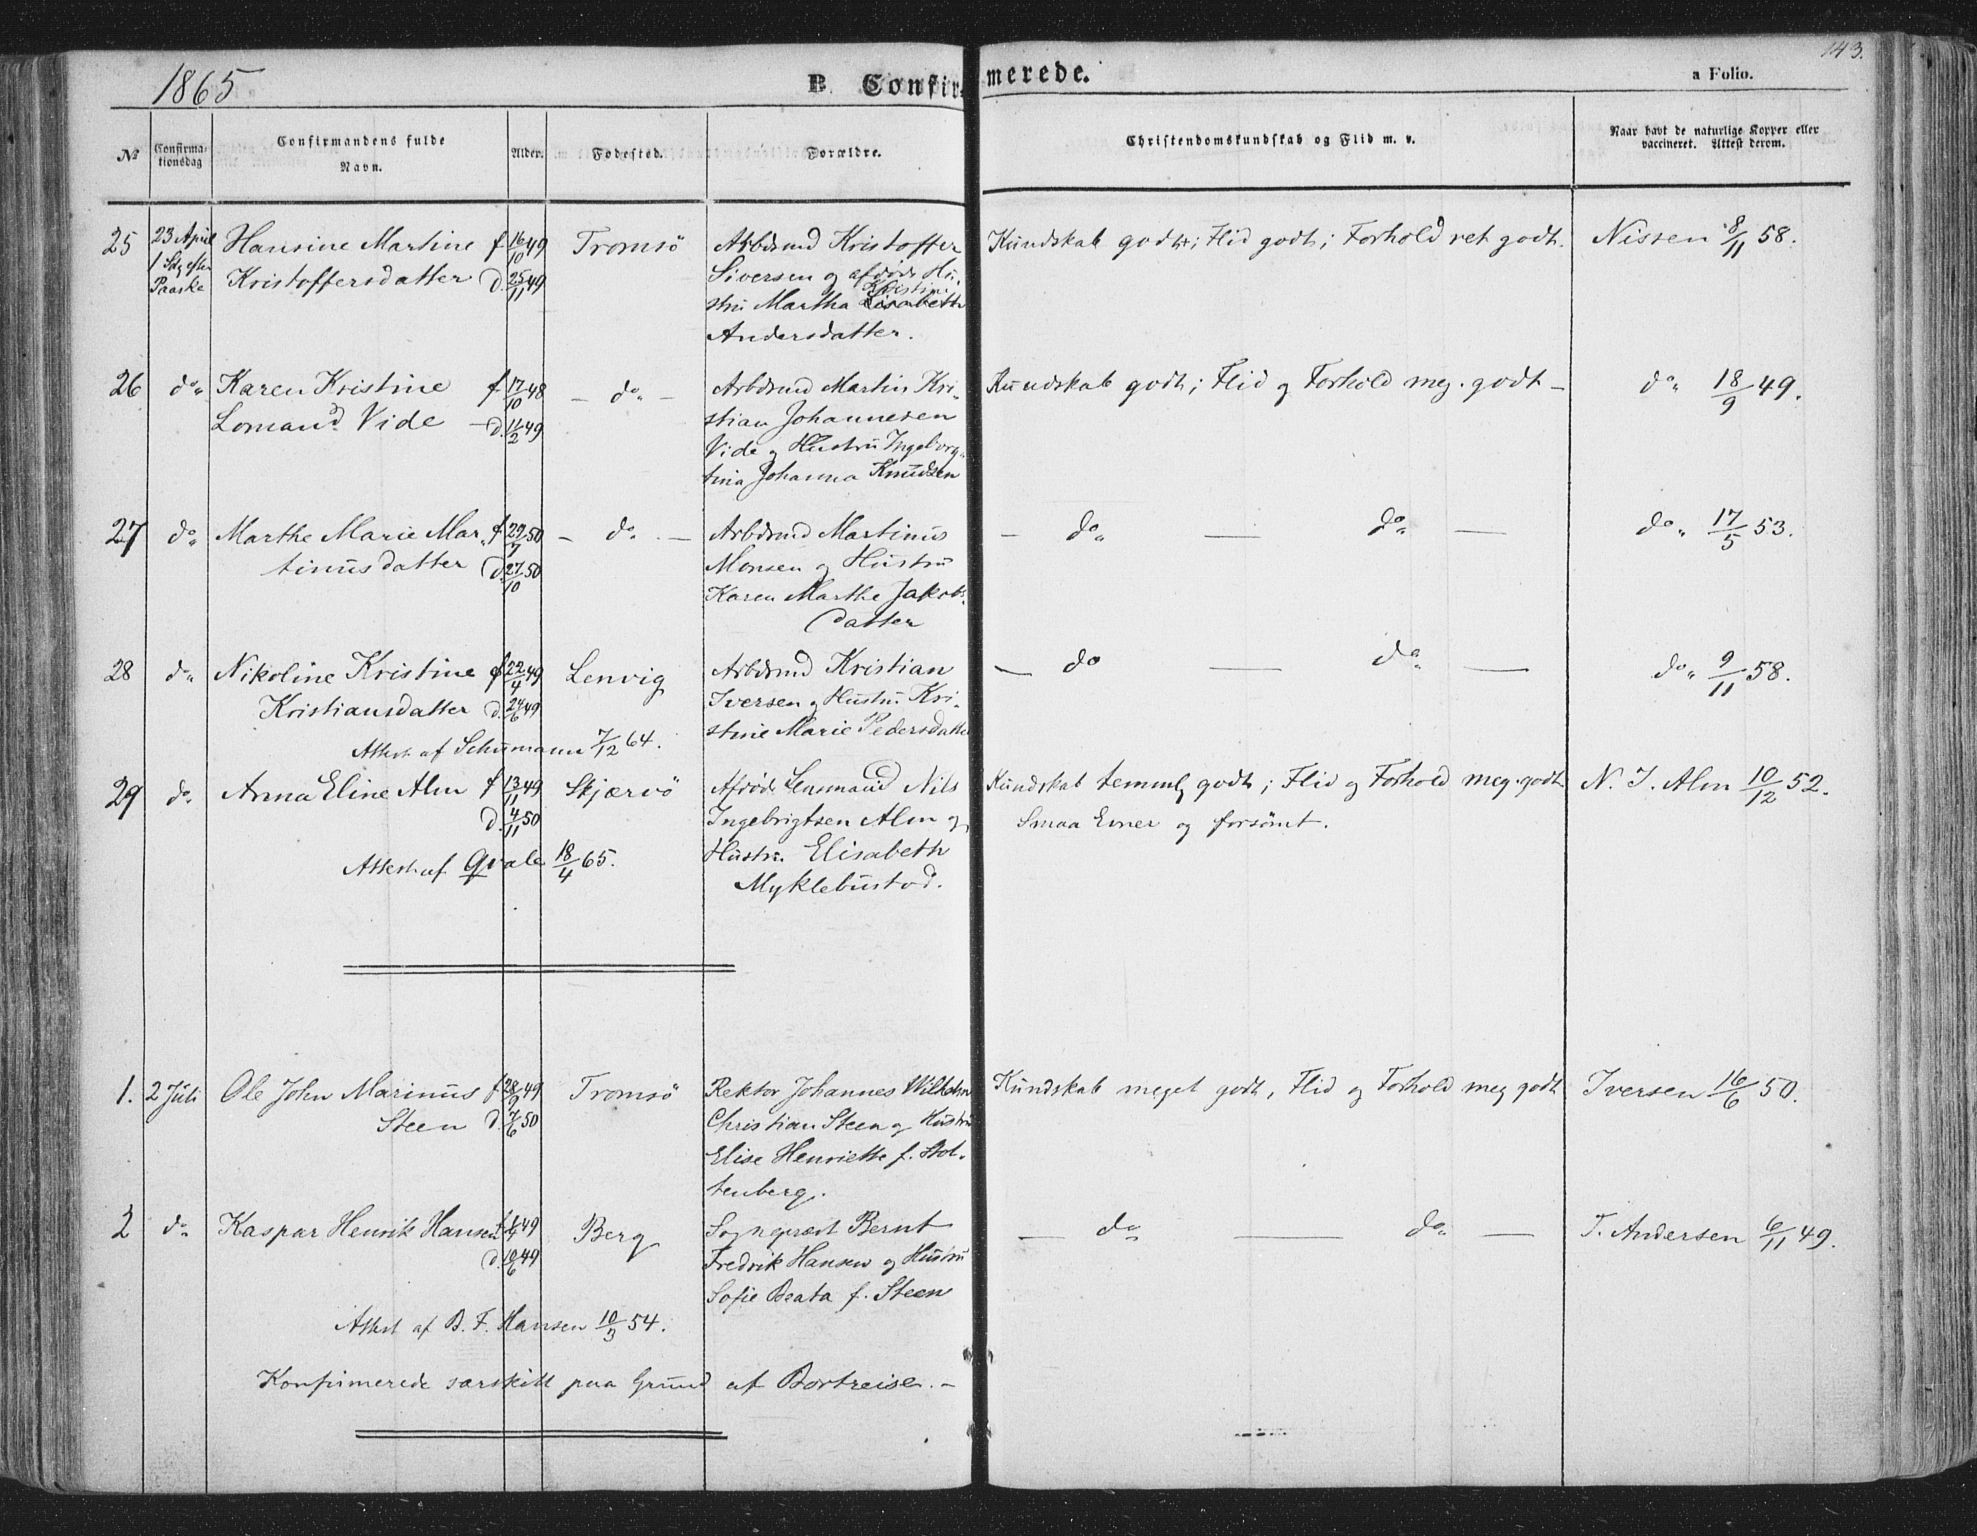 143.
1865
B. Confirmerede.
a Folio.
No
Confirmationsdag
Confirmandens fulde Navn.
Alder.
Fødested.
Forældre.
Christendomskundskab og Flid m. v.
Naar havt de naturlige Kopper eller vaccineret. Attest derom.
25 23 April Hansine Martine f 16/10 49 Tromsö Arbdsmd Kristoffer Kundskab godt; Flid godt; Forhold ret godt. Nissen 8/11 58.
1 Sdg efter Paaske Kristoffersdatter d. 25/11 49 Siversen og afdöde Hu-
stru Martha Kristine
Andersdatter.
26 do Karen Kristine f 17/10 48 - do - Arbdsmd Martin Kri- Kundskab godt; Flid og Forhold meg. godt - do 18/9 49.
Lomand Vide - d. 11/2 49 stian Johannesen
Vide og Hustru Ingeborg-
tina Johanna Knudsen
27 do Marthe Marie Mar- f 29/7 50 - do - Arbdsmd Martinus - do - do - do 17/5 53.
tinusdatter d. 27/10 50 Monsen og Hustru
Karen Marthe Jakobs-
datter
28 do Nikoline Kristine f 22/4 49 Lenvig Arbdsmd Kristian - do - do - do 9/11 58.
Kristiansdatter d. 24/6 49 Iversen og Hustru Kri-
stine Marie Pedersdatter
Attest af Schumann 7/12 64.
29 do Anna Eline Alm f 13/11 49 Skjærvö Afdöde Lensmand Nils Kundskab temmelig godt; Flid og Forhold meg. godt N. I. Alm 10/12 52.
d. 4/11 50 Ingebrigtsen Alm og Smaa Evner og forsömt.
Attest af Qvale 18/4 65. Hustru Elisabeth
Myklebustad.
1. 2 Juli Ole John Marinus f 28/9 49 Tromsö Rektor Johannes Wilhelm Kundskab meget godt, Flid og Forhold meg godt Iversen 16/6 50.
Steen d. 7/6 50 Christian Steen og Hustru
Elise Henriette f. Stol-
tenberg.
2 do Kaspar Henrik Hansen 49 Berg Sognepræst Bernt - do - do - T. Andersen 6/11 49.
d. 10/6 49 Fredrik Hansen og Hustru
Sofie Beata f. Steen
Attest af B. F. Hansen 10/3 54.
Konfirmerede særskilt paa Grund af Bortreise. -